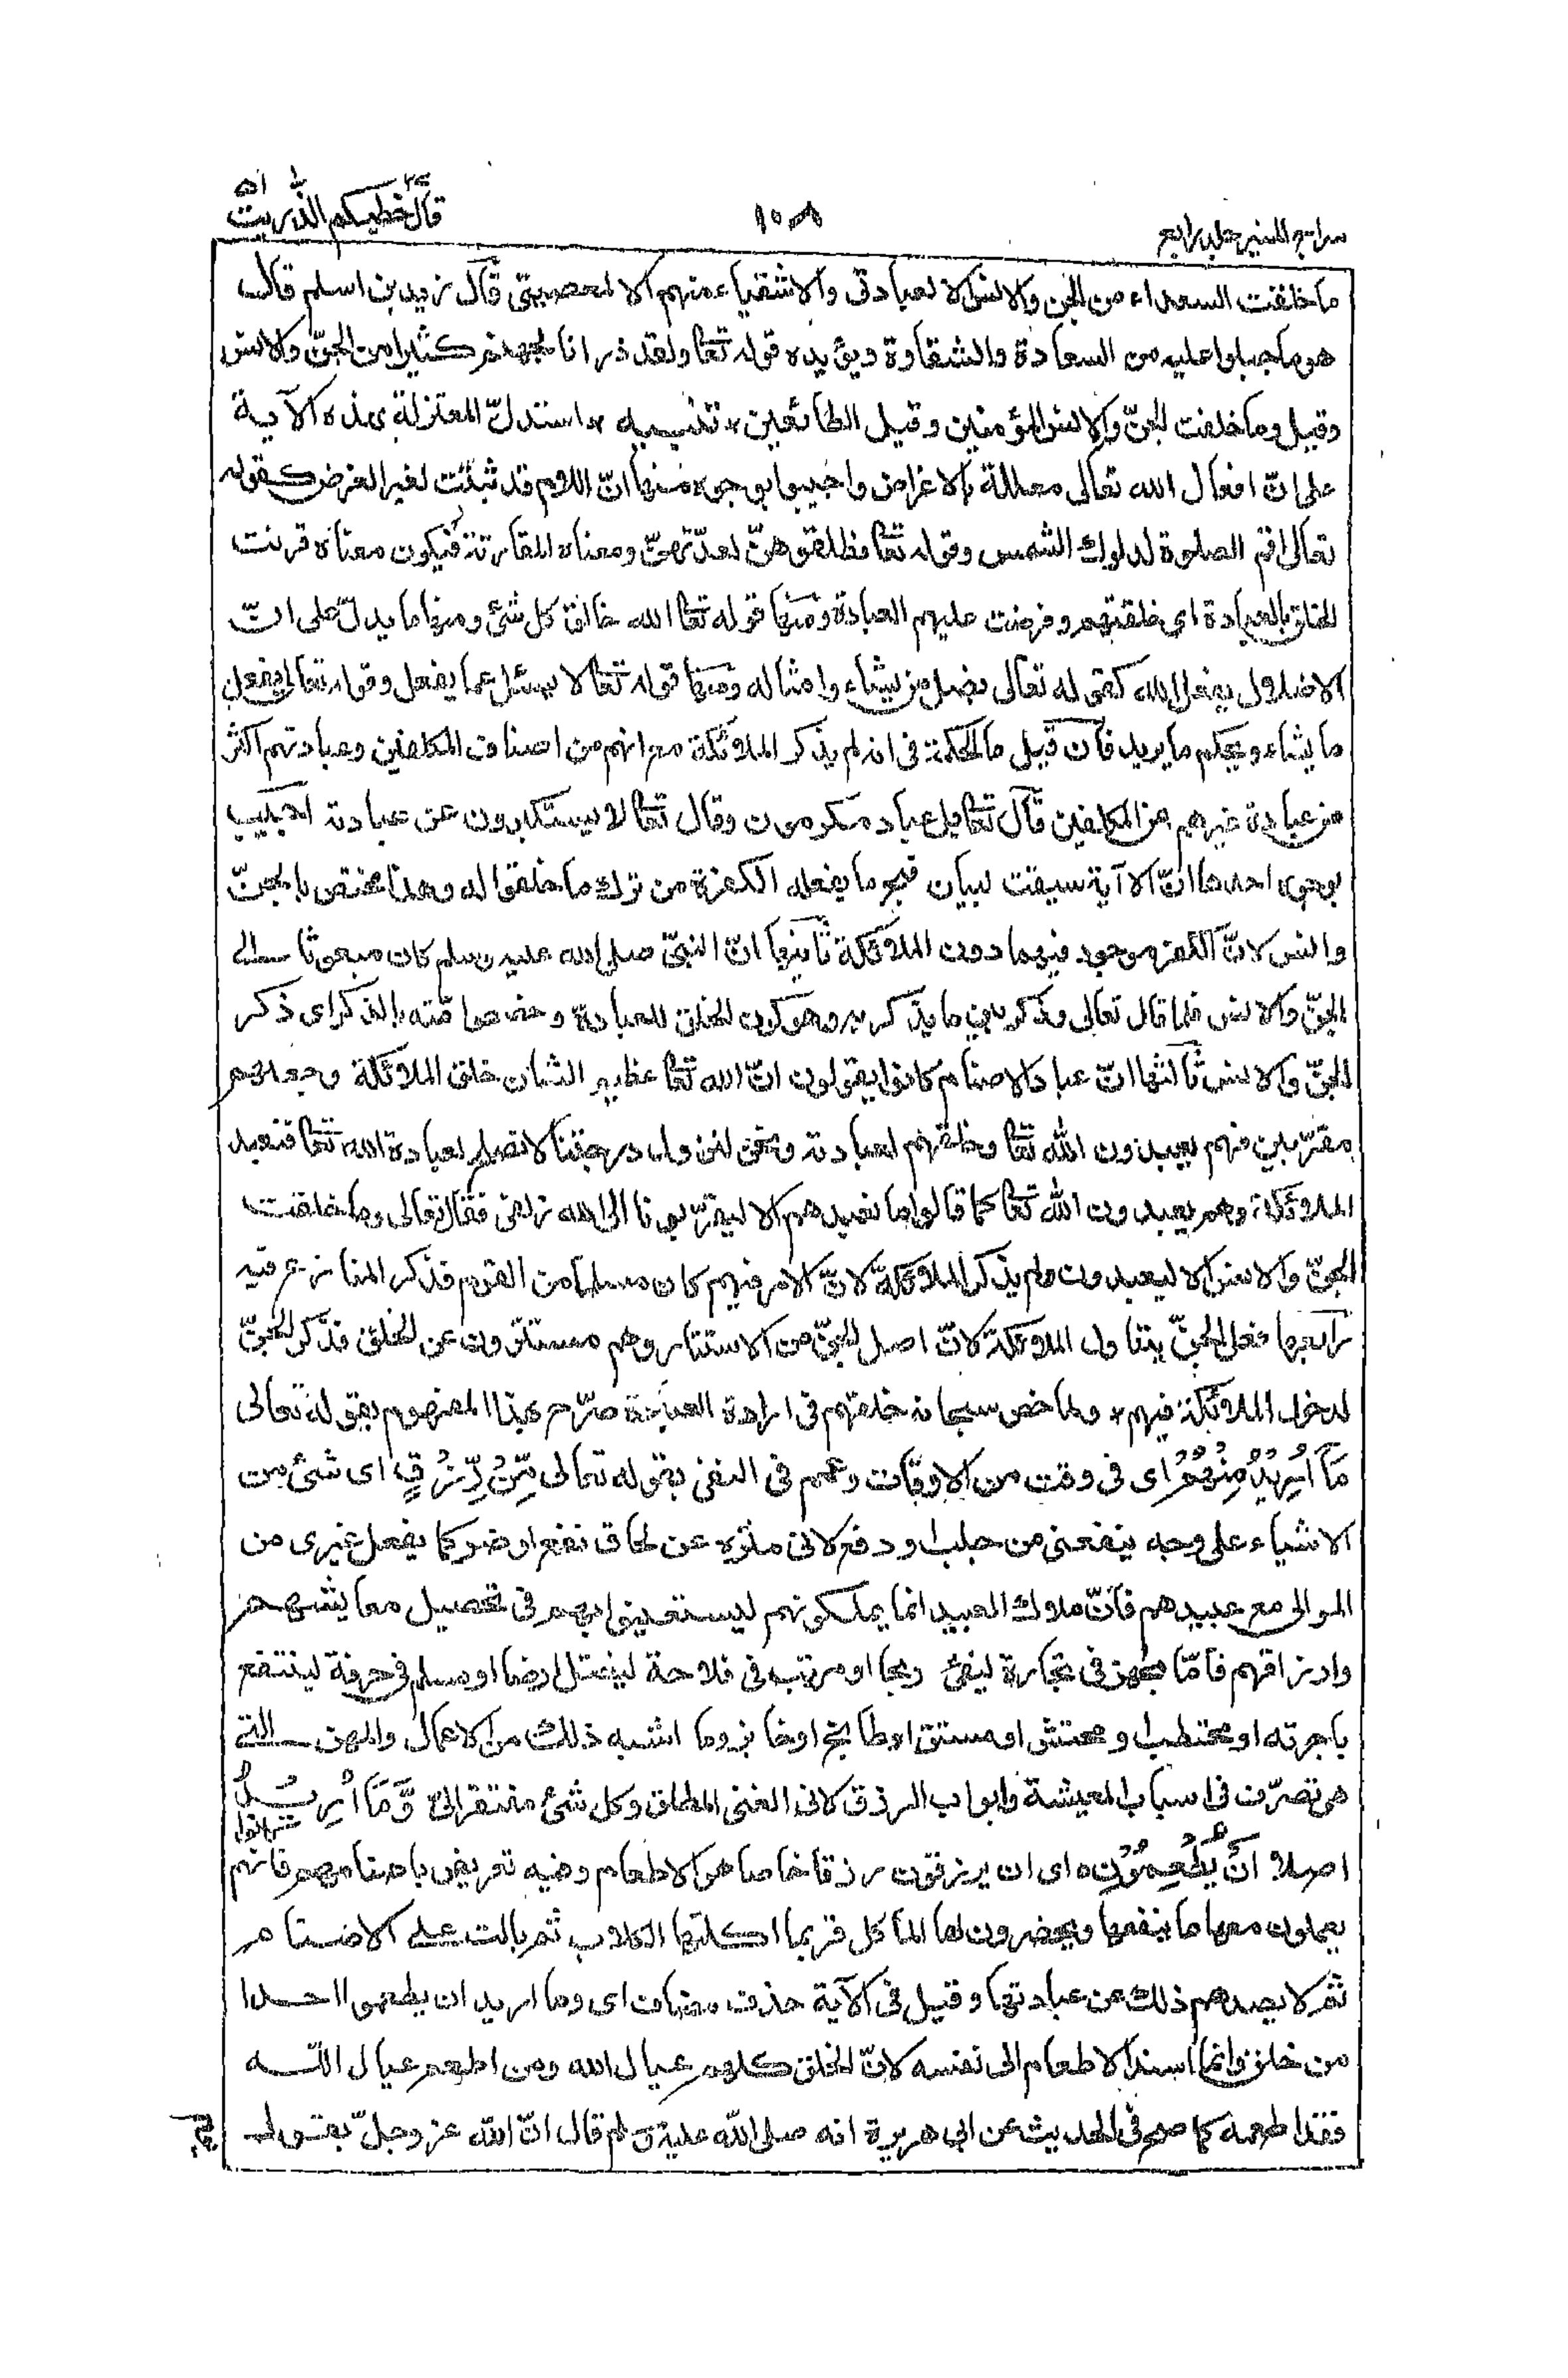 سراج المنير جلد رابع
١٠٨
قال فما خطبكم الذريت ٥١
ما خلقت السعداء من الجن والانس الا لعبادتى والاشقياء منهم الا لمعصيتى قال زيد بن اسلم قال
هو ما جبلوا عليه من السعادة والشقاوة ويؤيده قوله تعا ولقد ذرانا لجهنم كثيرا من الجنّ والانس
وقيل وما خلقت الجنّ والانس المؤمنين وقيل الطائعين * تنبيه * استدلّ المعتزلة بهذه الآية
على انّ افعال الله تعالى معللة بالاغراض واجيبوا بوجوه منها انّ اللام قد ثبتت لغير الغرض كقوله
تعالى اقم الصلوة لدلوك الشمس وقوله تعا فطلقوهنّ لعدّتهنّ ومعناه المقارنة فيكون معناه قرنت
الخلق بالعبادة اى خلقتهم وفرضت عليهم العبادة ومنها قوله تعا الله خالق كل شئ ومنها ما يدلّ على انّ
الاضلال بفعل الله كقوله تعالى يضل من يشاء وامثاله ومنها قوله تعا لا يسئل عما يفعل وقوله تعالى يفعل
ما يشاء ويحكم ما يريد فان قيل ما الحكمة فى انه لم يذكر الملائكة مع انهم من اصناف المكلفين وعبادتهم اكثر
من عبادة غيرهم من المكلفين قال تعا بل عباد مكرمون وقال تعا لا يستكبرون عن عبادته اجيب
بوجوه احدها انّ الآية سيقت لبيان قبح ما يفعله الكفرة من ترك ما خلقوا له وهذا مختص بالجنّ
والنس لانّ الكفر موجود فيهما دون الملائكة ثانيها انّ النبىّ صلى الله عليه وسلم كان مبعوثا الى
الجنّ والانس فلما قال تعالى وذكر بين ما يذكر به وهو كون الخلق للعبادة وخص امّته بالذكر اى ذكر
الجنّ والانس ثالثها انّ عباد الاصنام كانوا يقولون انّ الله تعا عظيم الشان خلق الملائكة وجعلهم
مقرّبين فهم يعبدون الله تعا وخلقهم لعبادته ونحن لنزول درجتنا لا نصلح لعبادة الله تعا فنعبد
الملائكة وهم يعبدون الله تعا كما قالوا ما نعبدهم الا ليقرّبونا الى الله زلفى فقال تعالى وما خلقت
الجنّ والانس الا ليعبدون ولم يذكر الملائكة لانّ الامر فيهم كان مسلما من القوم فذكر المنازع فيه
رابعها فعل الجنّ يتناول الملائكة لانّ اصل الجنّ من الاستتار وهم مستترون عن الخلق فذكر الجنّ
لدخول الملائكة فيهم * ولما خص سبحانه خلقهم فى ارادة العبادة صرّح بهذا المفهوم بقوله تعالى
مَآ اُرِيْدُ مِنْهُمْ اى فى وقت من الاوقات وعمم فى النفى بقوله تعالى مِّنْ رِّزْقٍ اى شئ من
الاشياء على وجه ينفعنى من جلب او دفع لانى منزه عن لحاق نفع او ضر كما يفعل غيرى من
الموالى مع عبيدهم فانّ ملاك العبيد انما يملكونهم ليستعينوا بهم فى تحصيل معايشهم
وارزاقهم فامّا مجهز فى تجارة ليفئ ربحا او مرتب فى فلاحة ليغتل ارضا او مسلم فى حرفة لينتفع
باجرته او محتطب او محتش او مستق او طابخ او خابز وما اشبه ذلك من الاعمال والمهن التى
هى تصرّف فى اسباب المعيشة وابواب الرزق لانى الغنى المطلق وكل شئ مفتقر الىّ وَّمَآ اُرِيْدُ
اصلا اَنْ يُّطْعِمُوْنِ اى ان يرزقون رزقا خاصا هو الاطعام وفيه تعريض باصنامهم فانهم
يعملون معها ما ينفعها ويحضرون لها المأكل فربما اكلتها الكلاب ثم بالت على الاصنام
ثم لا يصدهم ذلك عن عبادتها وقيل فى الآية حذف مضاف اى وما اريد ان يطعموا احدا
من خلقى وانما اسند الاطعام الى نفسه لانّ الخلق كلهم عيال الله ومن اطعم عيال الله
فقد اطعمه كما صح فى الحديث عن ابى هريرة انه صلى الله عليه وسلم قال انّ الله عز وجلّ يقول